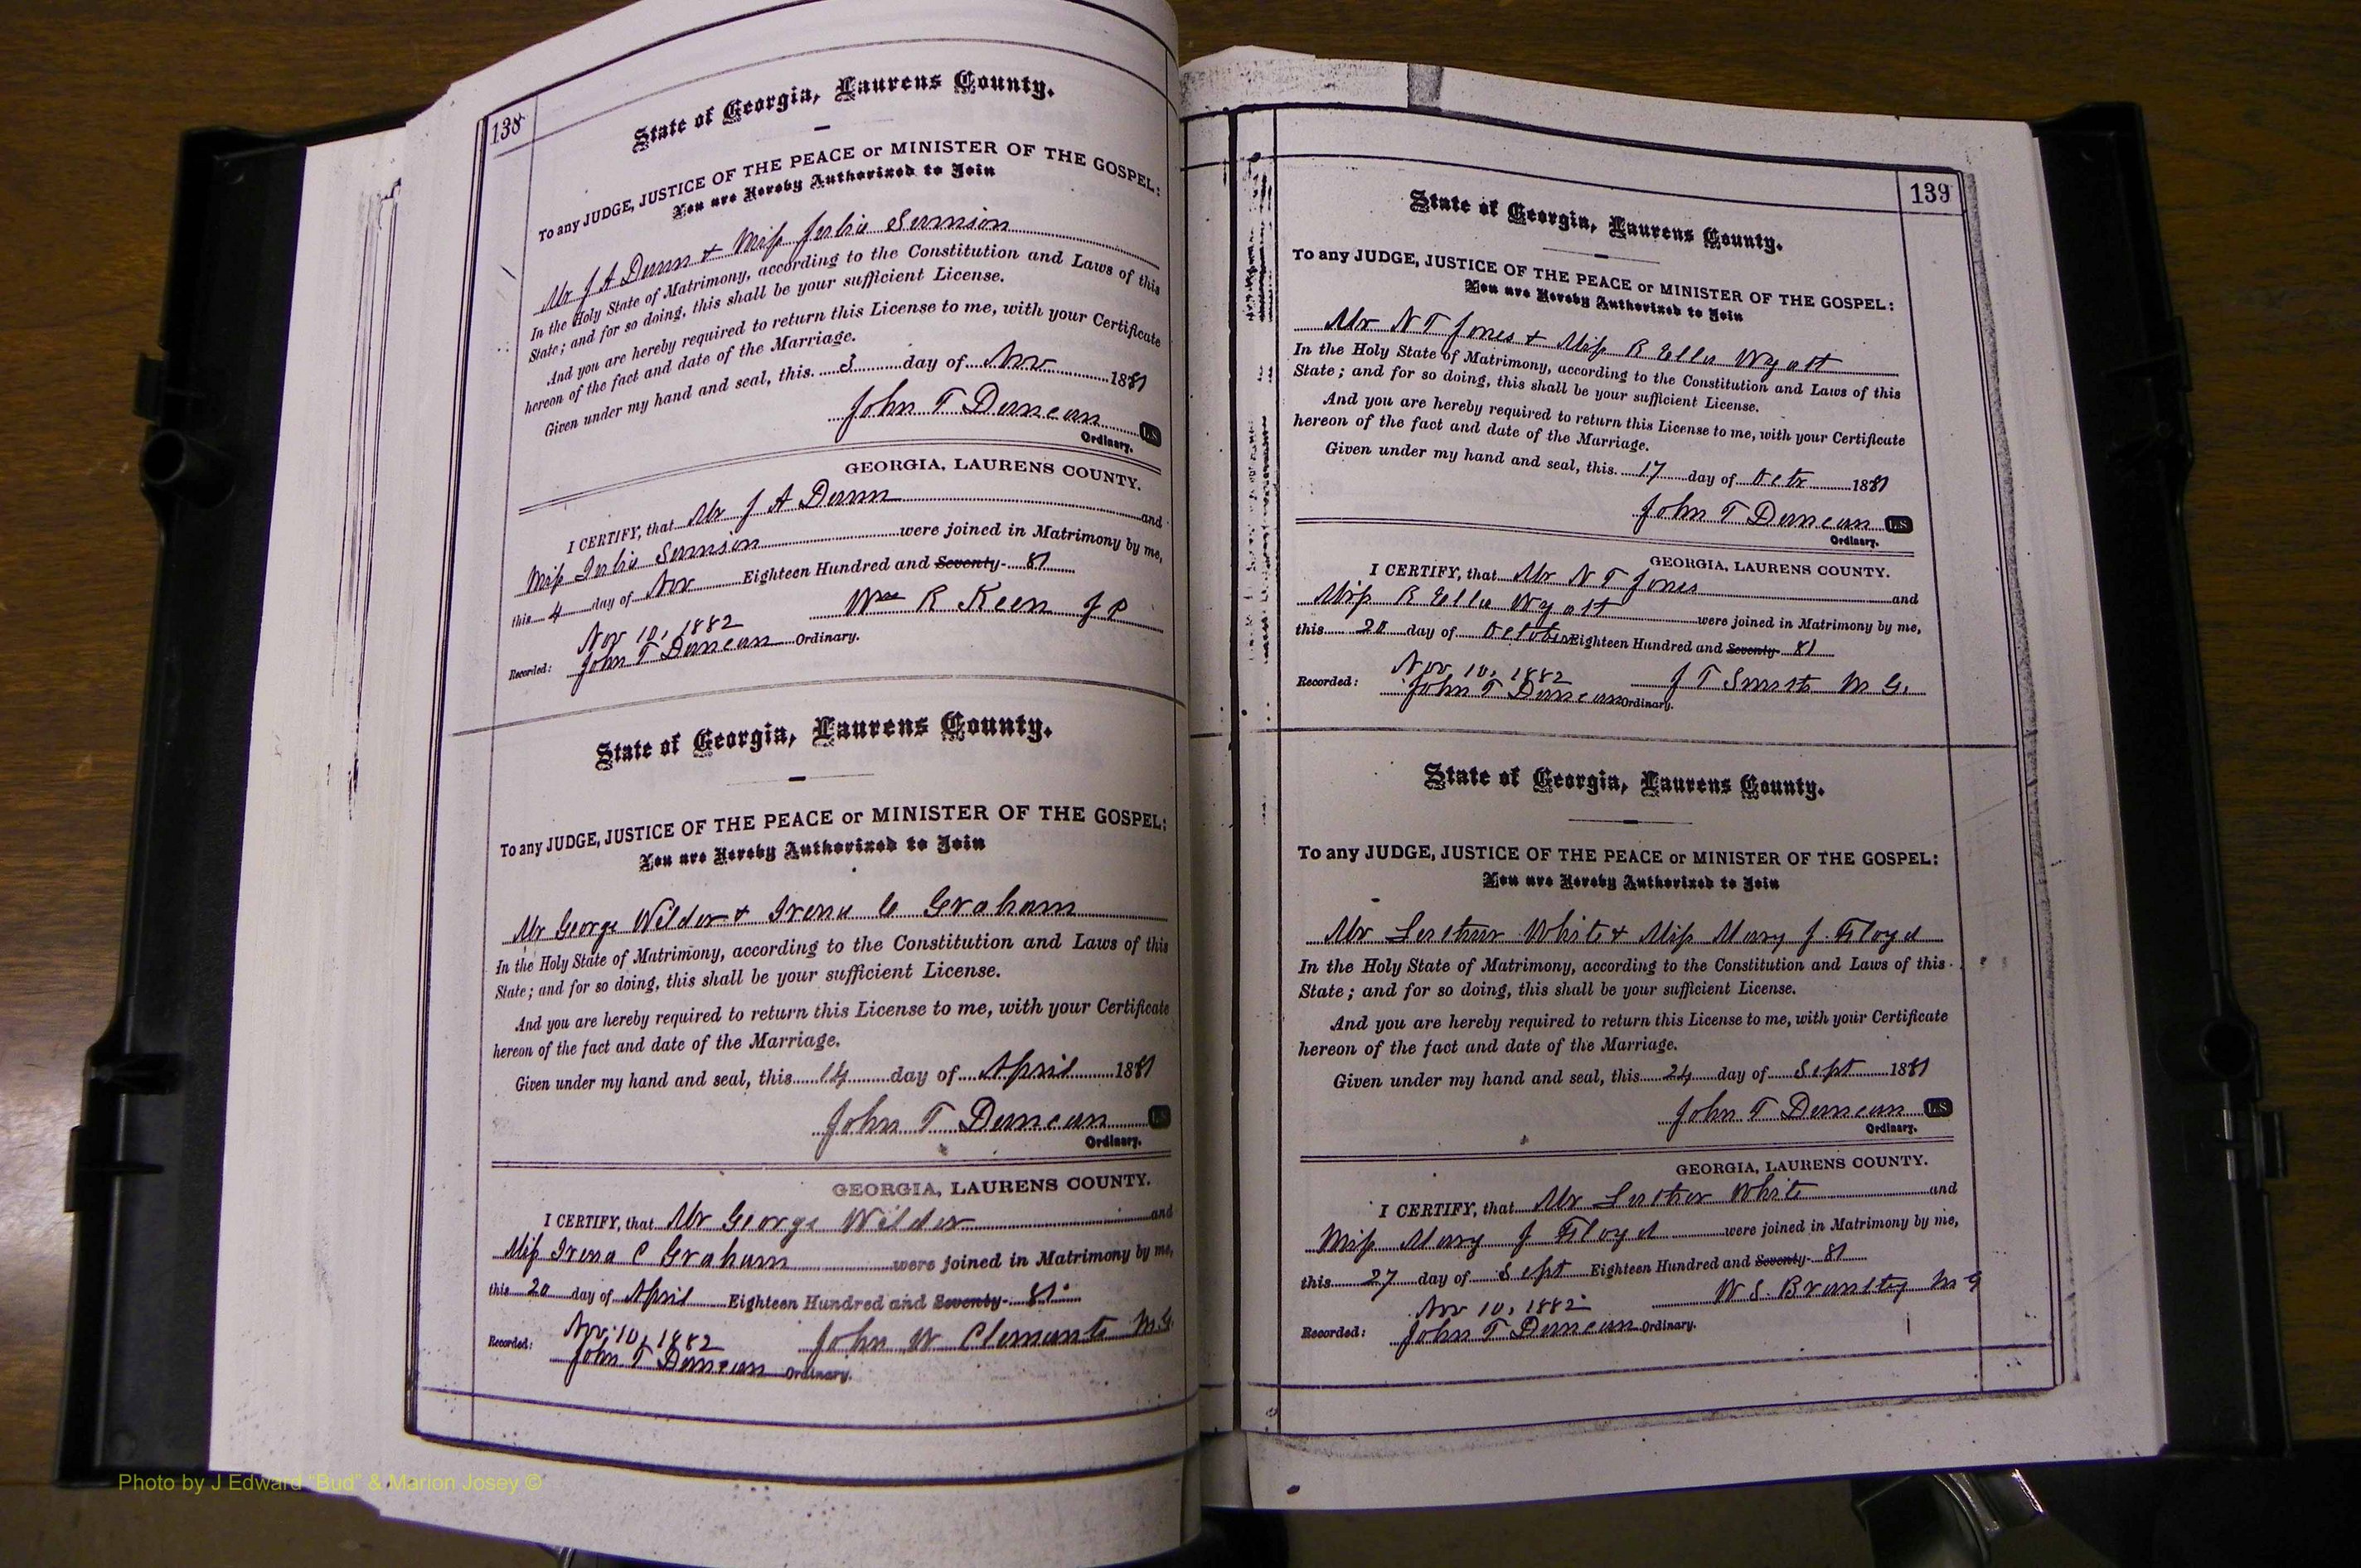 138
State of Georgia, Laurens County.
To any JUDGE, JUSTICE OF THE PEACE or MINISTER OF THE GOSPEL:
You are Hereby Authorized to Join
Mr J A Dunn & Miss
In the Holy State of Matrimony, according to the Constitution and Laws of this
State; and for so doing, this shall be your sufficient License.
And you are hereby required to return this License to me, with your Certificate
hereon of the fact and date of the Marriage.
Given under my hand and seal, this 3 day of Nov 1881
John T Duncan L.S
Ordinary.
GEORGIA, LAURENS COUNTY.
I CERTIFY, that Mr J A Dunn and
Miss were joined in Matrimony by me,
this 4 day of Nov Eighteen Hundred and Seventy- 81
Wm R Keen J P
Nov 10, 1882
Recorded: John T Duncan Ordinary.
State of Georgia, Laurens County.
To any JUDGE, JUSTICE OF THE PEACE or MINISTER OF THE GOSPEL:
You are Hereby Authorized to Join
Mr George Wilder & Irena C Graham
In the Holy State of Matrimony, according to the Constitution and Laws of this
State; and for so doing, this shall be your sufficient License.
And you are hereby required to return this License to me, with your Certificate
hereon of the fact and date of the Marriage.
Given under my hand and seal, this 14 day of April 1881
John T Duncan L.S
Ordinary.
GEORGIA, LAURENS COUNTY.
I CERTIFY, that Mr George Wilder and
Miss Irena C Graham were joined in Matrimony by me,
this 20 day of April Eighteen Hundred and Seventy- 81
Nov 10, 1882 John W Clements M.G.
Recorded: John T Duncan Ordinary.
139
State of Georgia, Laurens County.
To any JUDGE, JUSTICE OF THE PEACE or MINISTER OF THE GOSPEL:
You are Hereby Authorized to Join
Mr N T Jones & Miss R Ella Wyatt
In the Holy State of Matrimony, according to the Constitution and Laws of this
State; and for so doing, this shall be your sufficient License.
And you are hereby required to return this License to me, with your Certificate
hereon of the fact and date of the Marriage.
Given under my hand and seal, this 17 day of Octr 1881
John T Duncan L.S
Ordinary.
GEORGIA, LAURENS COUNTY.
I CERTIFY, that Mr N T Jones and
Miss R Ella Wyatt were joined in Matrimony by me,
this 20 day of October Eighteen Hundred and Seventy- 81
Nov 10, 1882 J T Smith M G.
Recorded: John T Duncan Ordinary.
State of Georgia, Laurens County.
To any JUDGE, JUSTICE OF THE PEACE or MINISTER OF THE GOSPEL:
You are Hereby Authorized to Join
Mr Luther White & Miss Mary J. Floyd
In the Holy State of Matrimony, according to the Constitution and Laws of this
State; and for so doing, this shall be your sufficient License.
And you are hereby required to return this License to me, with your Certificate
hereon of the fact and date of the Marriage.
Given under my hand and seal, this 24 day of Sept 1881
John T Duncan L.S
Ordinary.
GEORGIA, LAURENS COUNTY.
I CERTIFY, that Mr Luther White and
Miss Mary J Floyd were joined in Matrimony by me,
this 27 day of Sept Eighteen Hundred and Seventy- 81
W. S. M G
Nov 10, 1882
Recorded: John T Duncan Ordinary.
Photo by J Edward "Bud" & Marion Josey ©